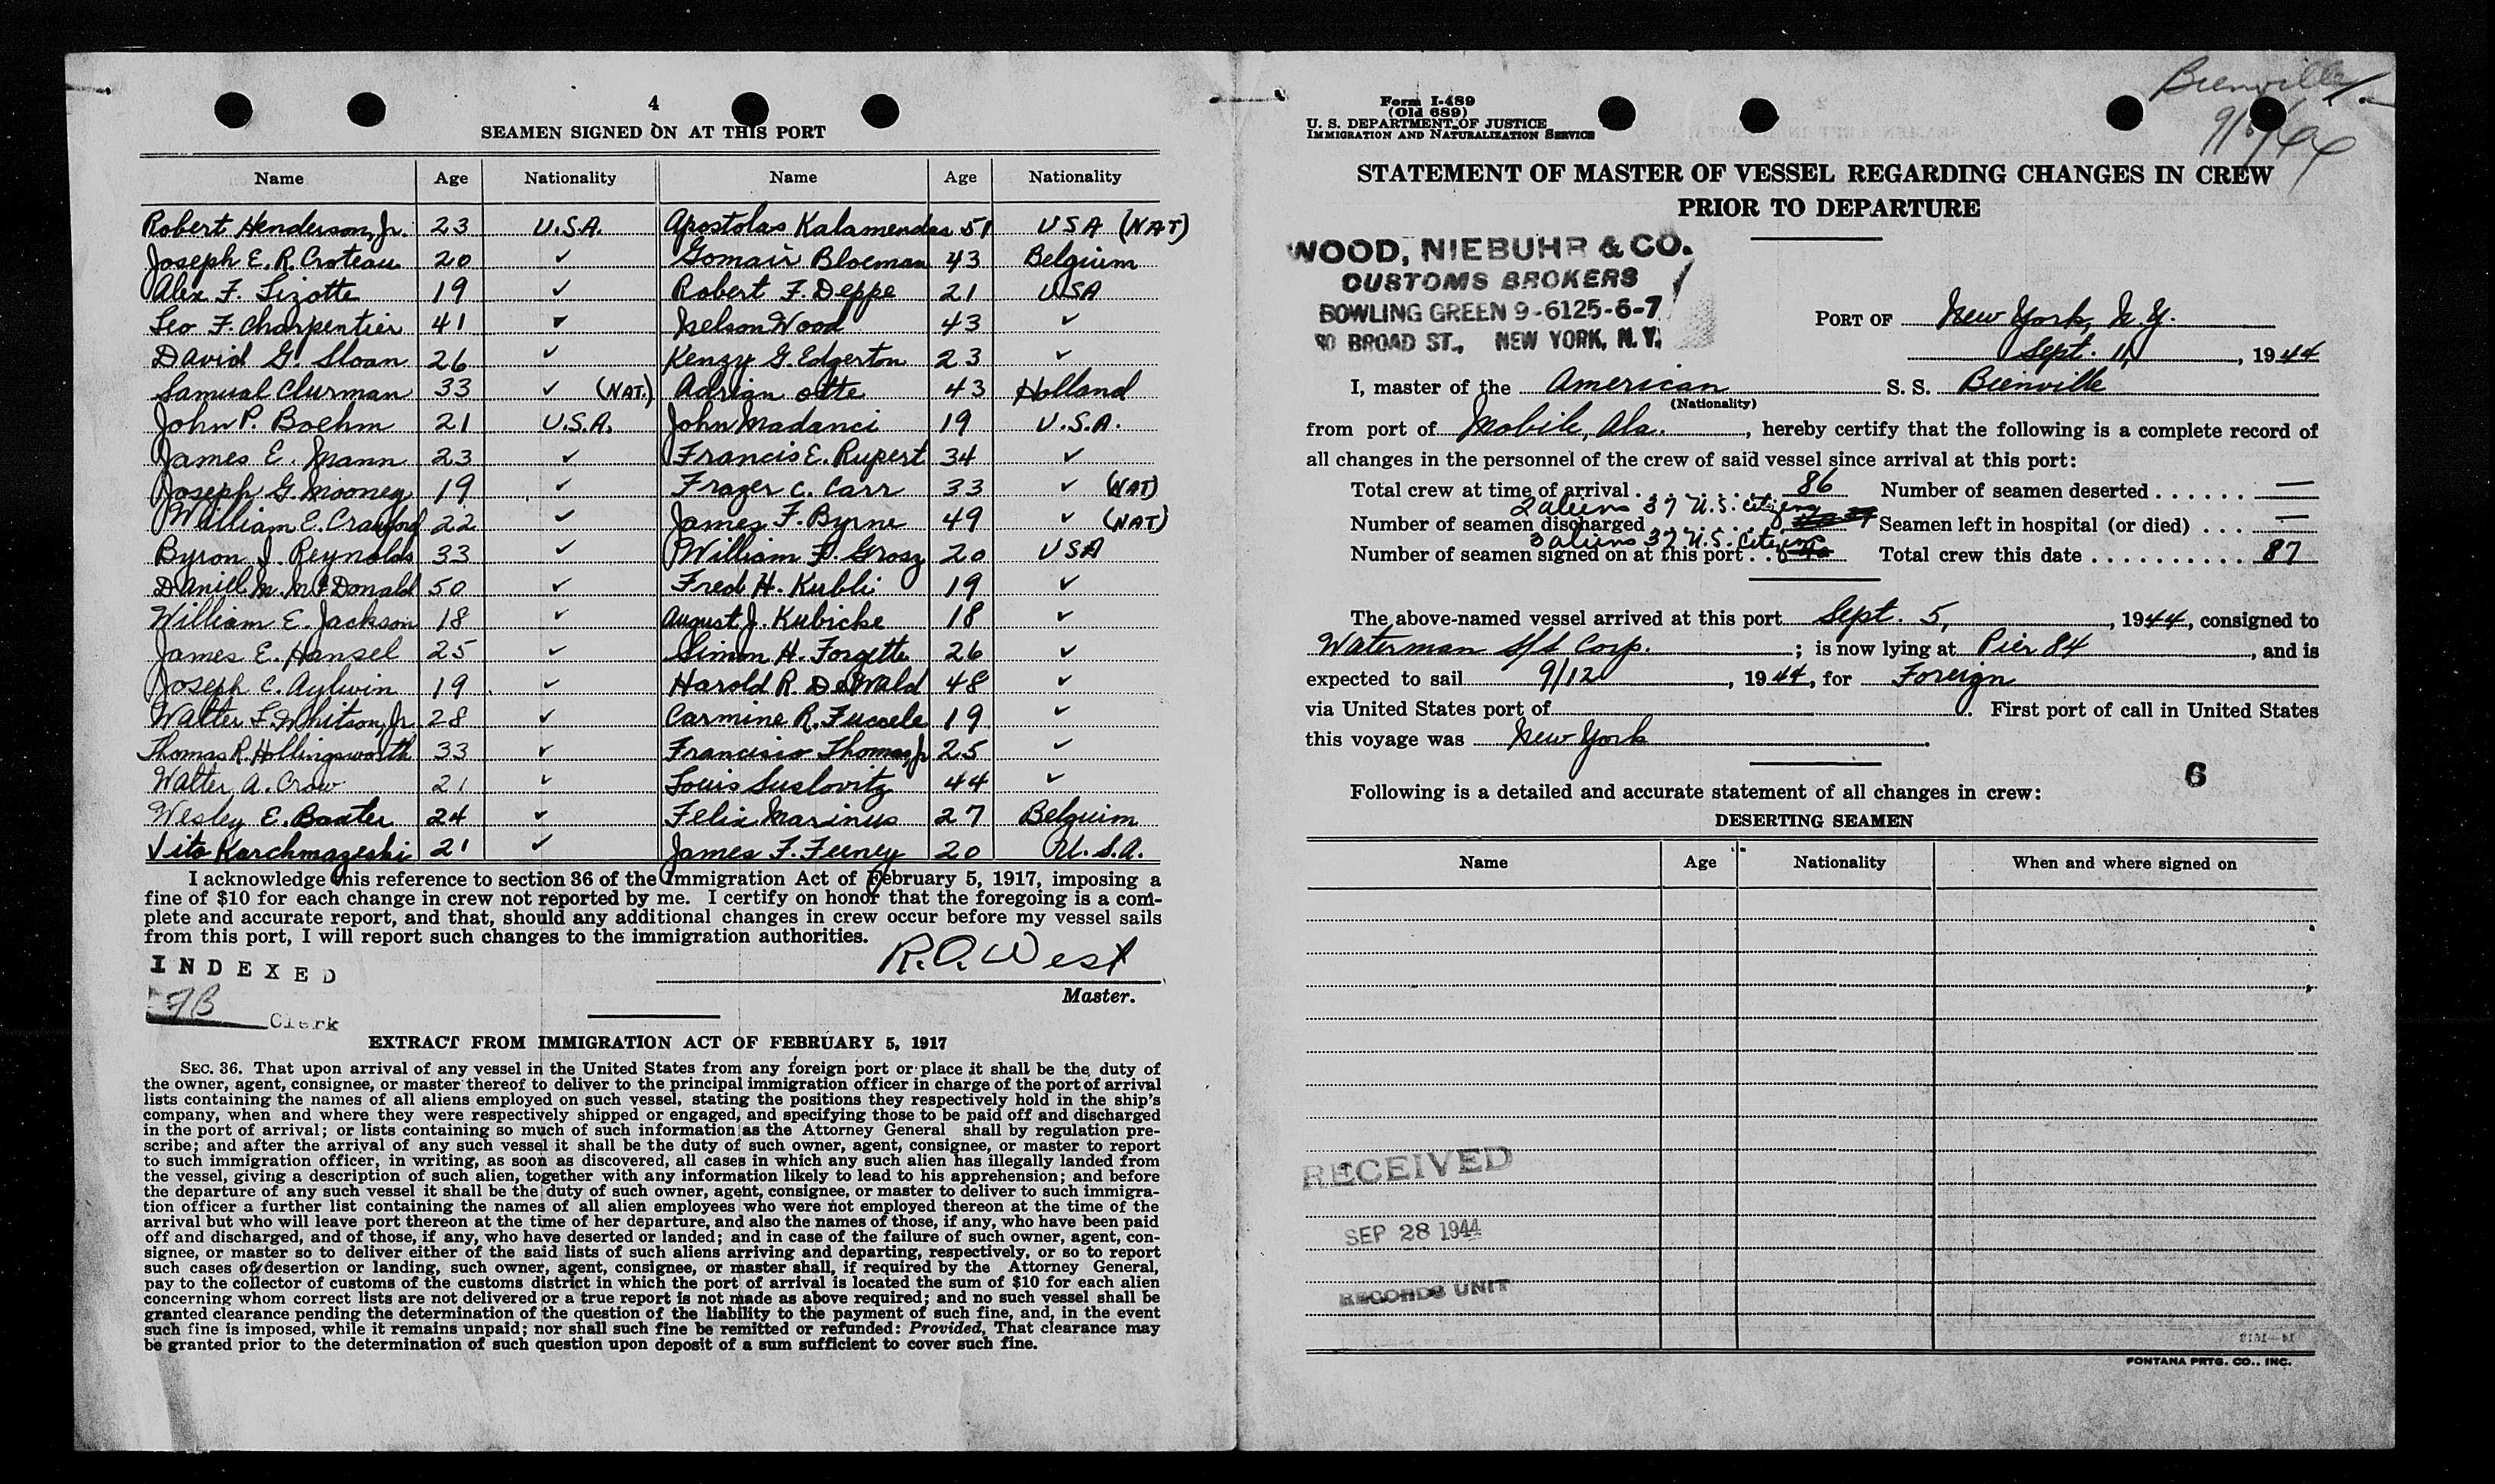 4
SEAMEN SIGNED ON AT THIS PORT
Name Age Nationality Name Age Nationality
Robert Henderson, Jr. 23 U.S.A. Apostolas Kalamendas 51 USA (NAT)
Joseph E. R. Croteau 20 ✓ Gomair Bloeman 43 Belgium
Alex F. Lizotte 19 ✓ Robert F. Deppe 21 USA
Leo F. Charpentier 41 ✓ Nelson Wood 43 ✓
David G. Sloan 26 ✓ Kenzy G. Edgerton 23 ✓
Samual Clurman 33 ✓ (NAT.) Adrian Otte 43 Holland
John P. Boehm 21 U.S.A. John Madanci 19 U.S.A.
James E. Mann 23 ✓ Francis E. Rupert 34 ✓
Joseph G. Mooney 19 ✓ Frazer C. Carr 33 ✓ (NAT)
William E. Crawford 22 ✓ James F. Byrne 49 ✓ (NAT)
Byron J. Reynolds 33 ✓ William F. Grosz 20 USA
Daniel M. McDonald 50 ✓ Fred H. Kubli 19 ✓
William E. Jackson 18 ✓ August J. Kubicke 18 ✓
James E. Hansel 25 ✓ Simon H. Forgette 26 ✓
Joseph C. Aylwin 19 ✓ Harold R. DeWald 48 ✓
Walter L. Whitson, Jr 28 ✓ Carmine R. Fuccele 19 ✓
Thomas R. Hollingsworth 33 ✓ Francisco Thomas, Jr 25 ✓
Walter A. Crow 21 ✓ Louis Suslovitz 44 ✓
Wesley E. Baxter 24 ✓ Felix Marinus 27 Belguim
Vito Karchmazeski 21 ✓ James F. Feeney 20 U.S.A.
I acknowledge this reference to section 36 of the Immigration Act of February 5, 1917, imposing a
fine of $10 for each change in crew not reported by me. I certify on honor that the foregoing is a com-
plete and accurate report, and that, should any additional changes in crew occur before my vessel sails
from this port, I will report such changes to the immigration authorities.
R. A. West
Master.
INDEXED
Clerk
EXTRACT FROM IMMIGRATION ACT OF FEBRUARY 5, 1917
SEC. 36. That upon arrival of any vessel in the United States from any foreign port or place it shall be the duty of
the owner, agent, consignee, or master thereof to deliver to the principal immigration officer in charge of the port of arrival
lists containing the names of all aliens employed on such vessel, stating the positions they respectively hold in the ship's
company, when and where they were respectively shipped or engaged, and specifying those to be paid off and discharged
in the port of arrival; or lists containing so much of such information as the Attorney General shall by regulation pre-
scribe; and after the arrival of any such vessel it shall be the duty of such owner, agent, consignee, or master to report
to such immigration officer, in writing, as soon as discovered, all cases in which any such alien has illegally landed from
the vessel, giving a description of such alien, together with any information likely to lead to his apprehension; and before
the departure of any such vessel it shall be the duty of such owner, agent, consignee, or master to deliver to such immigra-
tion officer a further list containing the names of all alien employees who were not employed thereon at the time of the
arrival but who will leave port thereon at the time of her departure, and also the names of those, if any, who have been paid
off and discharged, and of those, if any, who have deserted or landed; and in case of the failure of such owner, agent, con-
signee, or master so to deliver either of the said lists of such aliens arriving and departing, respectively, or so to report
such cases of desertion or landing, such owner, agent, consignee, or master shall, if required by the Attorney General,
pay to the collector of customs of the customs district in which the port of arrival is located the sum of $10 for each alien
concerning whom correct lists are not delivered or a true report is not made as above required; and no such vessel shall be
granted clearance pending the determination of the question of the liability to the payment of such fine, and, in the event
such fine is imposed, while it remains unpaid; nor shall such fine be remitted or refunded: Provided, That clearance may
be granted prior to the determination of such question upon deposit of a sum sufficient to cover such fine.
Bienville
9/5/44
Form I-489
(Old 689)
U. S. DEPARTMENT OF JUSTICE
IMMIGRATION AND NATURALIZATION SERVICE
STATEMENT OF MASTER OF VESSEL REGARDING CHANGES IN CREW
PRIOR TO DEPARTURE
WOOD, NIEBUHR & CO.
CUSTOMS BROKERS
BOWLING GREEN 9-6125-6-7
80 BROAD ST., NEW YORK, N.Y.
PORT OF New York, N.Y.
Sept. 11, 1944
I, master of the American S. S. Bienville
(Nationality)
from port of Mobile, Ala., hereby certify that the following is a complete record of
all changes in the personnel of the crew of said vessel since arrival at this port:
Total crew at time of arrival . . . . . . 86 Number of seamen deserted . . . . . . —
2 aliens 37 U.S. Citizens
Number of seamen discharged Seamen left in hospital (or died) . . . —
3 aliens 37 U.S. Citizens
Number of seamen signed on at this port . . 40 Total crew this date . . . . . . . . . . 87
The above-named vessel arrived at this port Sept. 5, 1944, consigned to
Waterman S/S Corp. ; is now lying at Pier 84, and is
expected to sail 9/12, 1944, for Foreign
via United States port of . First port of call in United States
this voyage was New York.
6
Following is a detailed and accurate statement of all changes in crew:
DESERTING SEAMEN
Name Age Nationality When and where signed on
RECEIVED
SEP 28 1944
RECORDS UNIT
FONTANA PRTG. CO., INC.